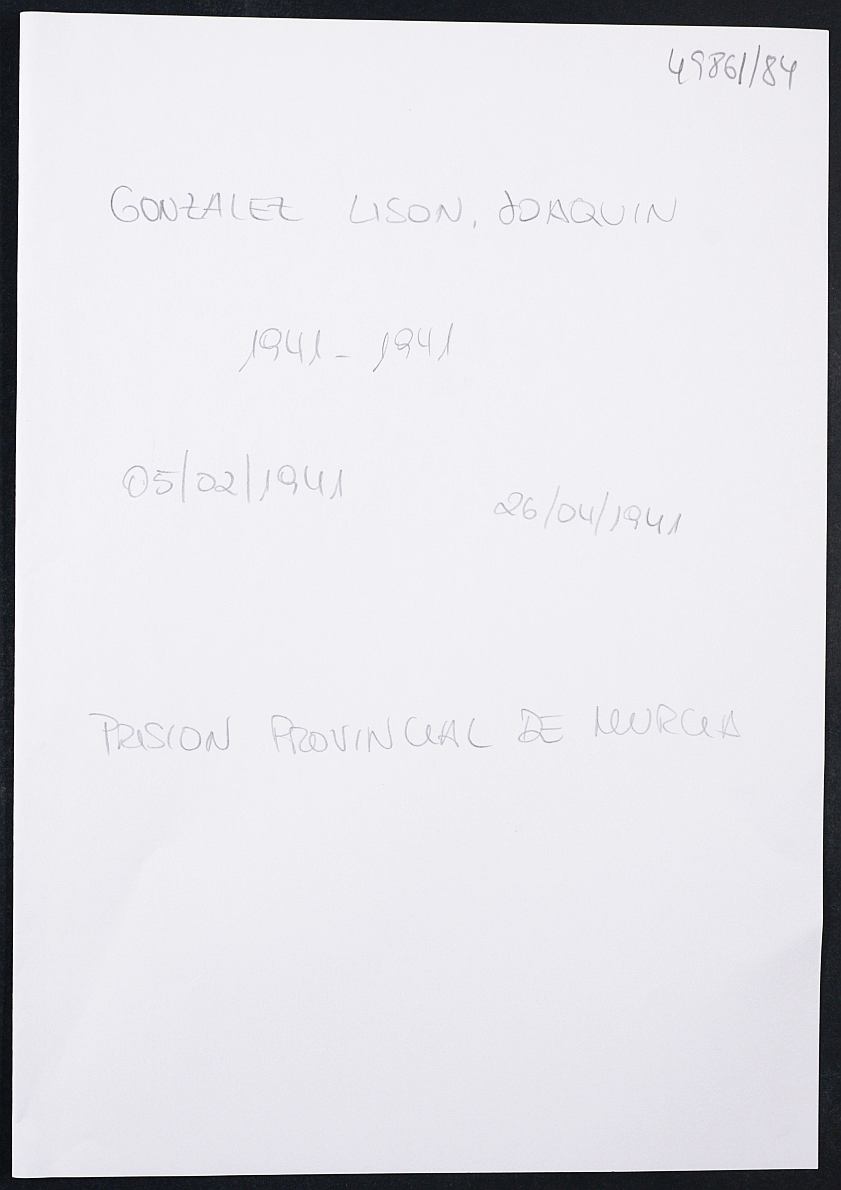 49861/84
GONZALEZ LISON, JOAQUIN
1941 - 1941
05/02/1941
26/04/1941
PRISION PROVINCIAL DE MURCIA